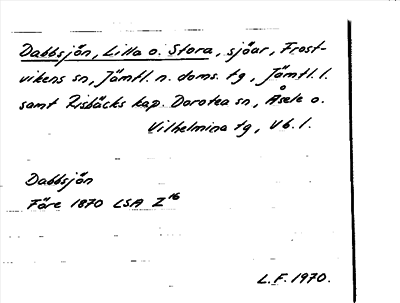 Dabbsjön, Lilla o. Stora, sjöar, Frost-
vikens sn, Jämtl. n. doms. tg, Jämtl. l.
samt Risbäcks kap. Dorotea sn, Åsele o.
Vilhelmina tg, Vb. l.
Dabbsjön
Före 1870 LSA Z16
L.F. 1970.